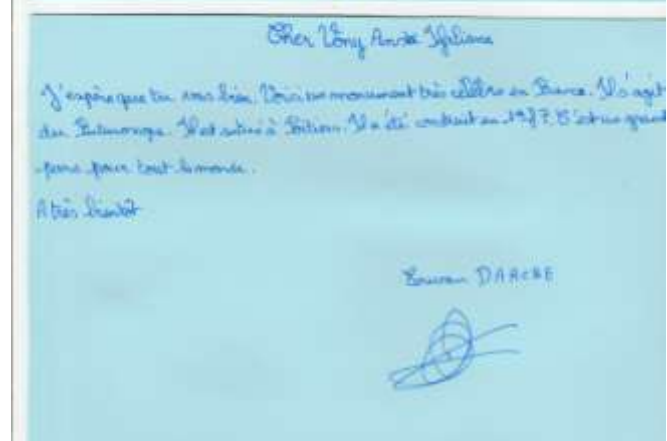 Cher Vony
J'espère que tu vas bien. Voici un monument très célèbre en France. Il s'agit
du Futuroscope. Il est situé à Poitiers. Il a été construit en 1987. C'est un grand
parc pour tout le monde.
A très bientôt
DARCHE